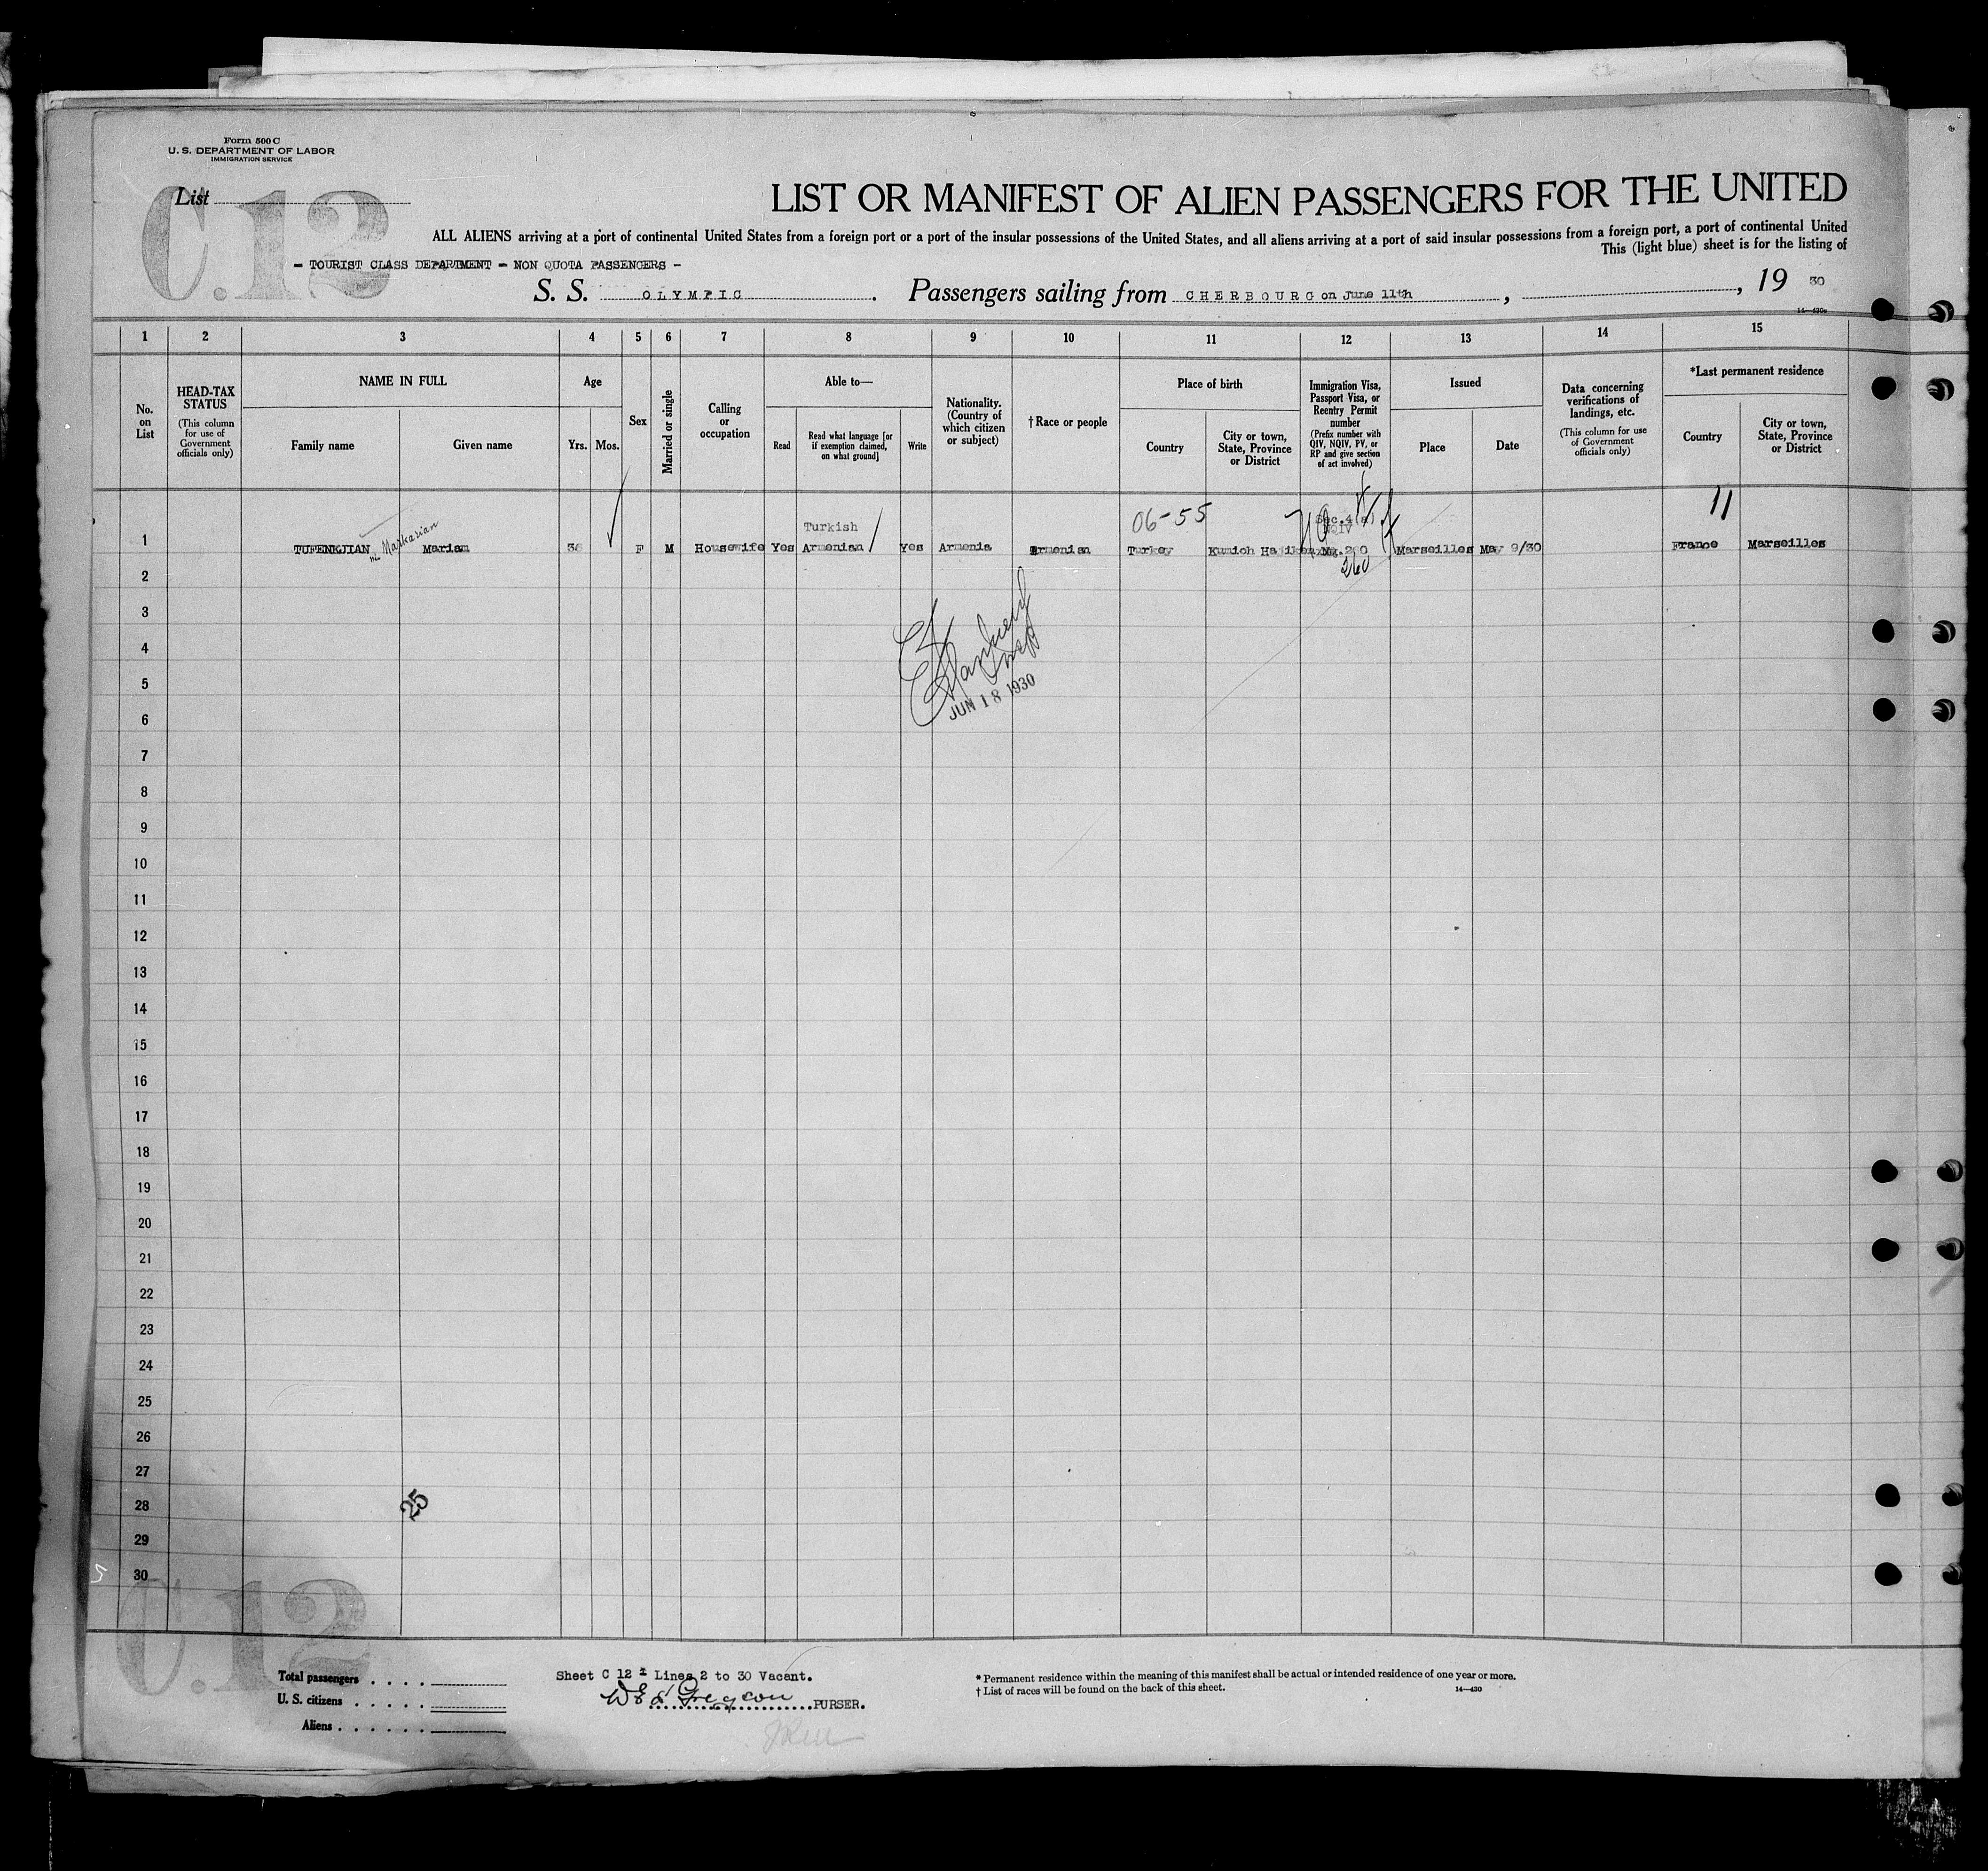 Form 500 C
U. S. DEPARTMENT OF LABOR
IMMIGRATION SERVICE
List
C.12
LIST OR MANIFEST OF ALIEN PASSENGERS FOR THE UNITED
ALL ALIENS arriving at a port of continental United States from a foreign port or a port of the insular possessions of the United States, and all aliens arriving at a port of said insular possessions from a foreign port, a port of continental United
This (light blue) sheet is for the listing of
- TOURIST CLASS DEPARTMENT - NON QUOTA PASSENGERS -
S. S. OLYMPIC. Passengers sailing from CHERBOURG on June 11th, , 19 30
14—430b
1 2 3 4 5 6 7 8 9 10 11 12 13 14 15
No. on List
HEAD-TAX STATUS
(This column for use of Government officials only)
NAME IN FULL
Family name
Given name
Age
Yrs.
Mos.
Sex
Married or single
Calling or occupation
Able to—
Read
Read what language [or if exemption claimed, on what ground]
Write
Nationality. (Country of which citizen or subject)
† Race or people
Place of birth
Country
City or town, State, Province or District
Immigration Visa, Passport Visa, or Reentry Permit number
(Prefix number with QIV, NQIV, PV, or RP and give section of act involved)
Issued
Place
Date
Data concerning verifications of landings, etc.
(This column for use of Government officials only)
*Last permanent residence
Country
City or town, State, Province or District
06-55
11
Turkish
Sec. 4(a)
NQIV
1 TUFENKJIAN Markarian Mariam 36 F M Housewife Yes Armenian Yes Armenia Armenian Turkey Marseilles May 9/30 France Marseilles
260
2
3
4
5
JUN 18 1930
6
7
8
9
10
11
12
13
14
15
16
17
18
19
20
21
22
23
24
25
26
27
28
25
29
30
C.12
Total passengers
U. S. citizens
Aliens
Sheet C 12 - Lines 2 to 30 Vacant.
PURSER.
* Permanent residence within the meaning of this manifest shall be actual or intended residence of one year or more.
† List of races will be found on the back of this sheet.
14—430